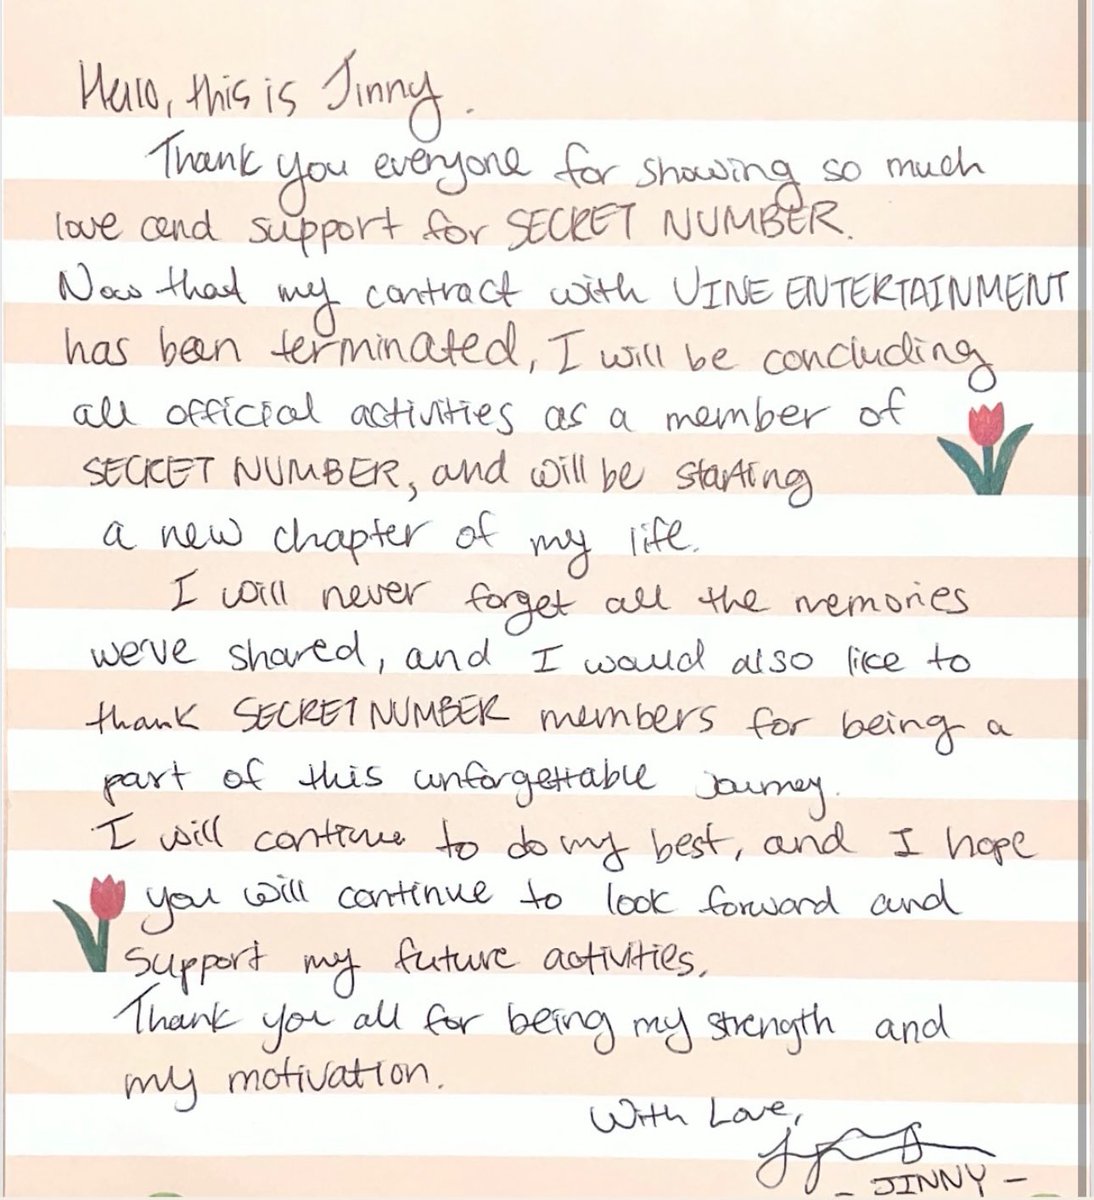 Hello, this is Jinny.
Thank you everyone for showing so much
love and support for SECRET NUMBER.
Now that my contract with VINE ENTERTAINMENT
has been terminated, I will be concluding
all official activities as a member of
SECRET NUMBER, and will be starting
a new chapter of my life.
I will never forget all the memories
we've shared, and I would also like to
thank SECRET NUMBER members for being a
part of this unforgettable journey.
I will continue to do my best, and I hope
you will continue to look forward and
support my future activities.
Thank you all for being my strength and
my motivation.
With Love,
- JINNY -